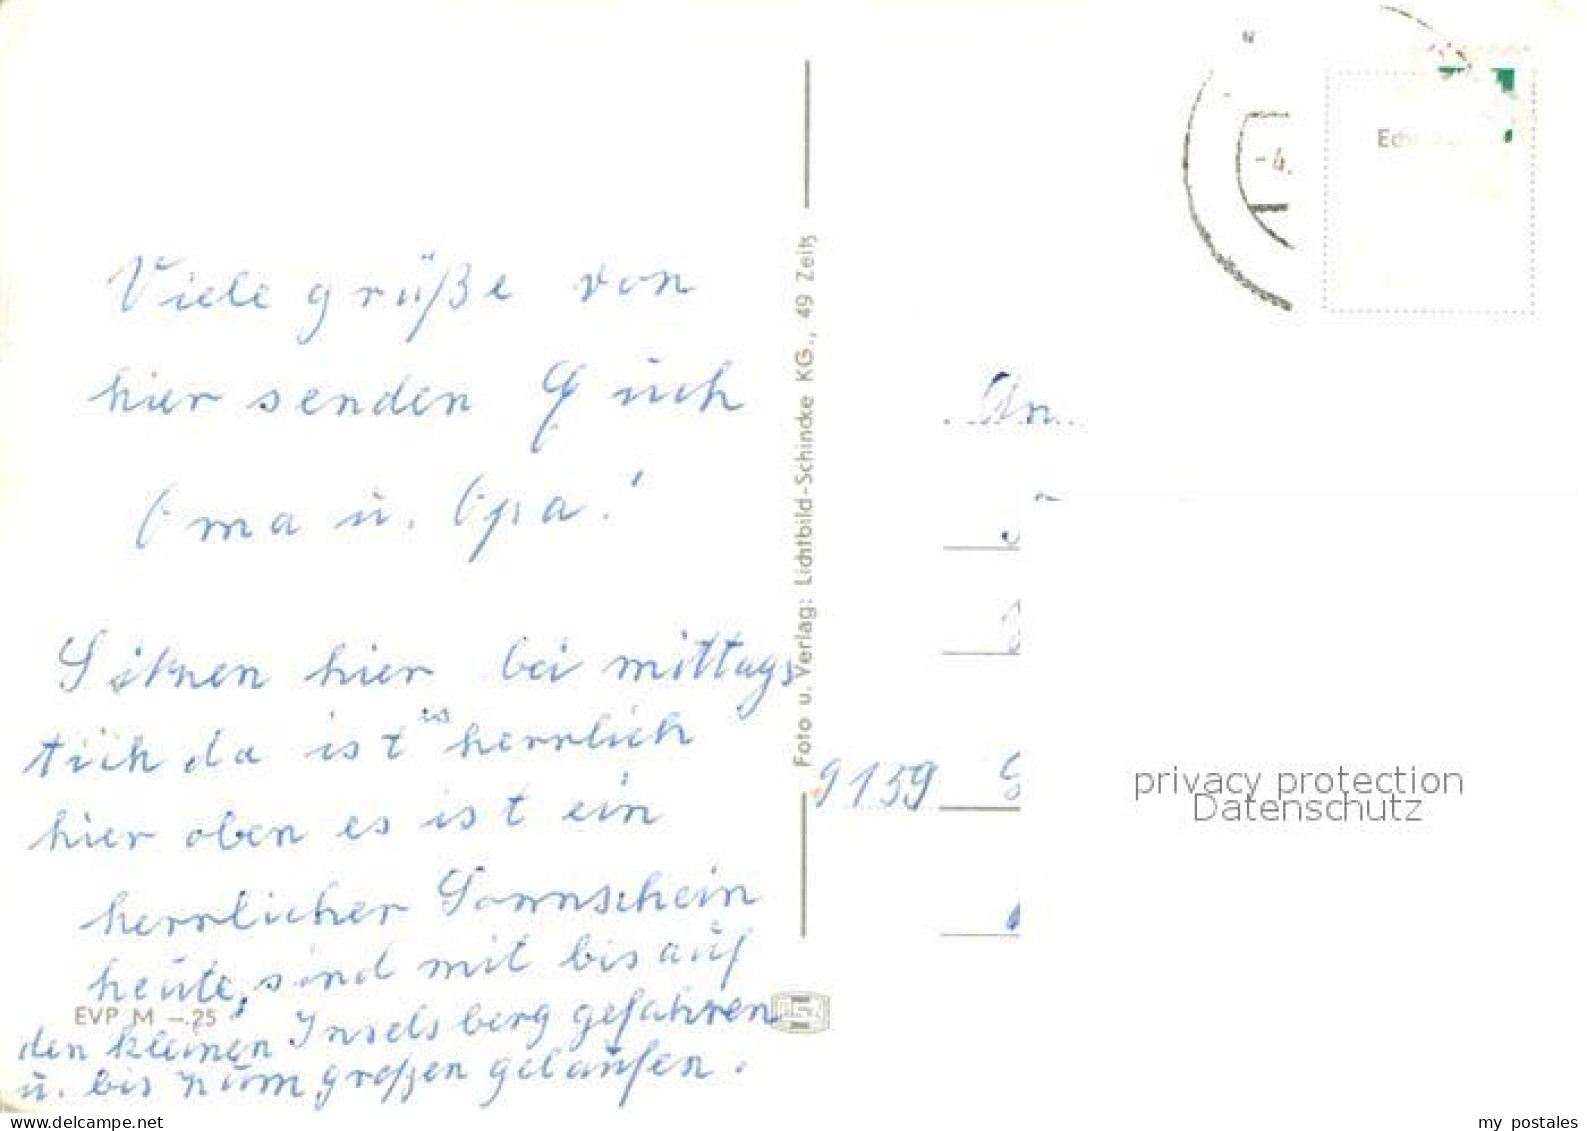 Viele grüße von
hier senden Euch
Oma u. Opa!
Sitzen hier bei mittags
tich da ist es herrlich
hier oben es ist ein
herrlicher Sonnschein
heute, sind mit bis auf
den kleinen Inselsberg gefahren
u. bis zum großen gelaufen.
EVP M –.25
Foto u. Verlag: Lichtbild-Schincke KG., 49 Zeitz
-4.
Ech
An
9159
privacy protection
Datenschutz
www.delcampe.net
my_postales